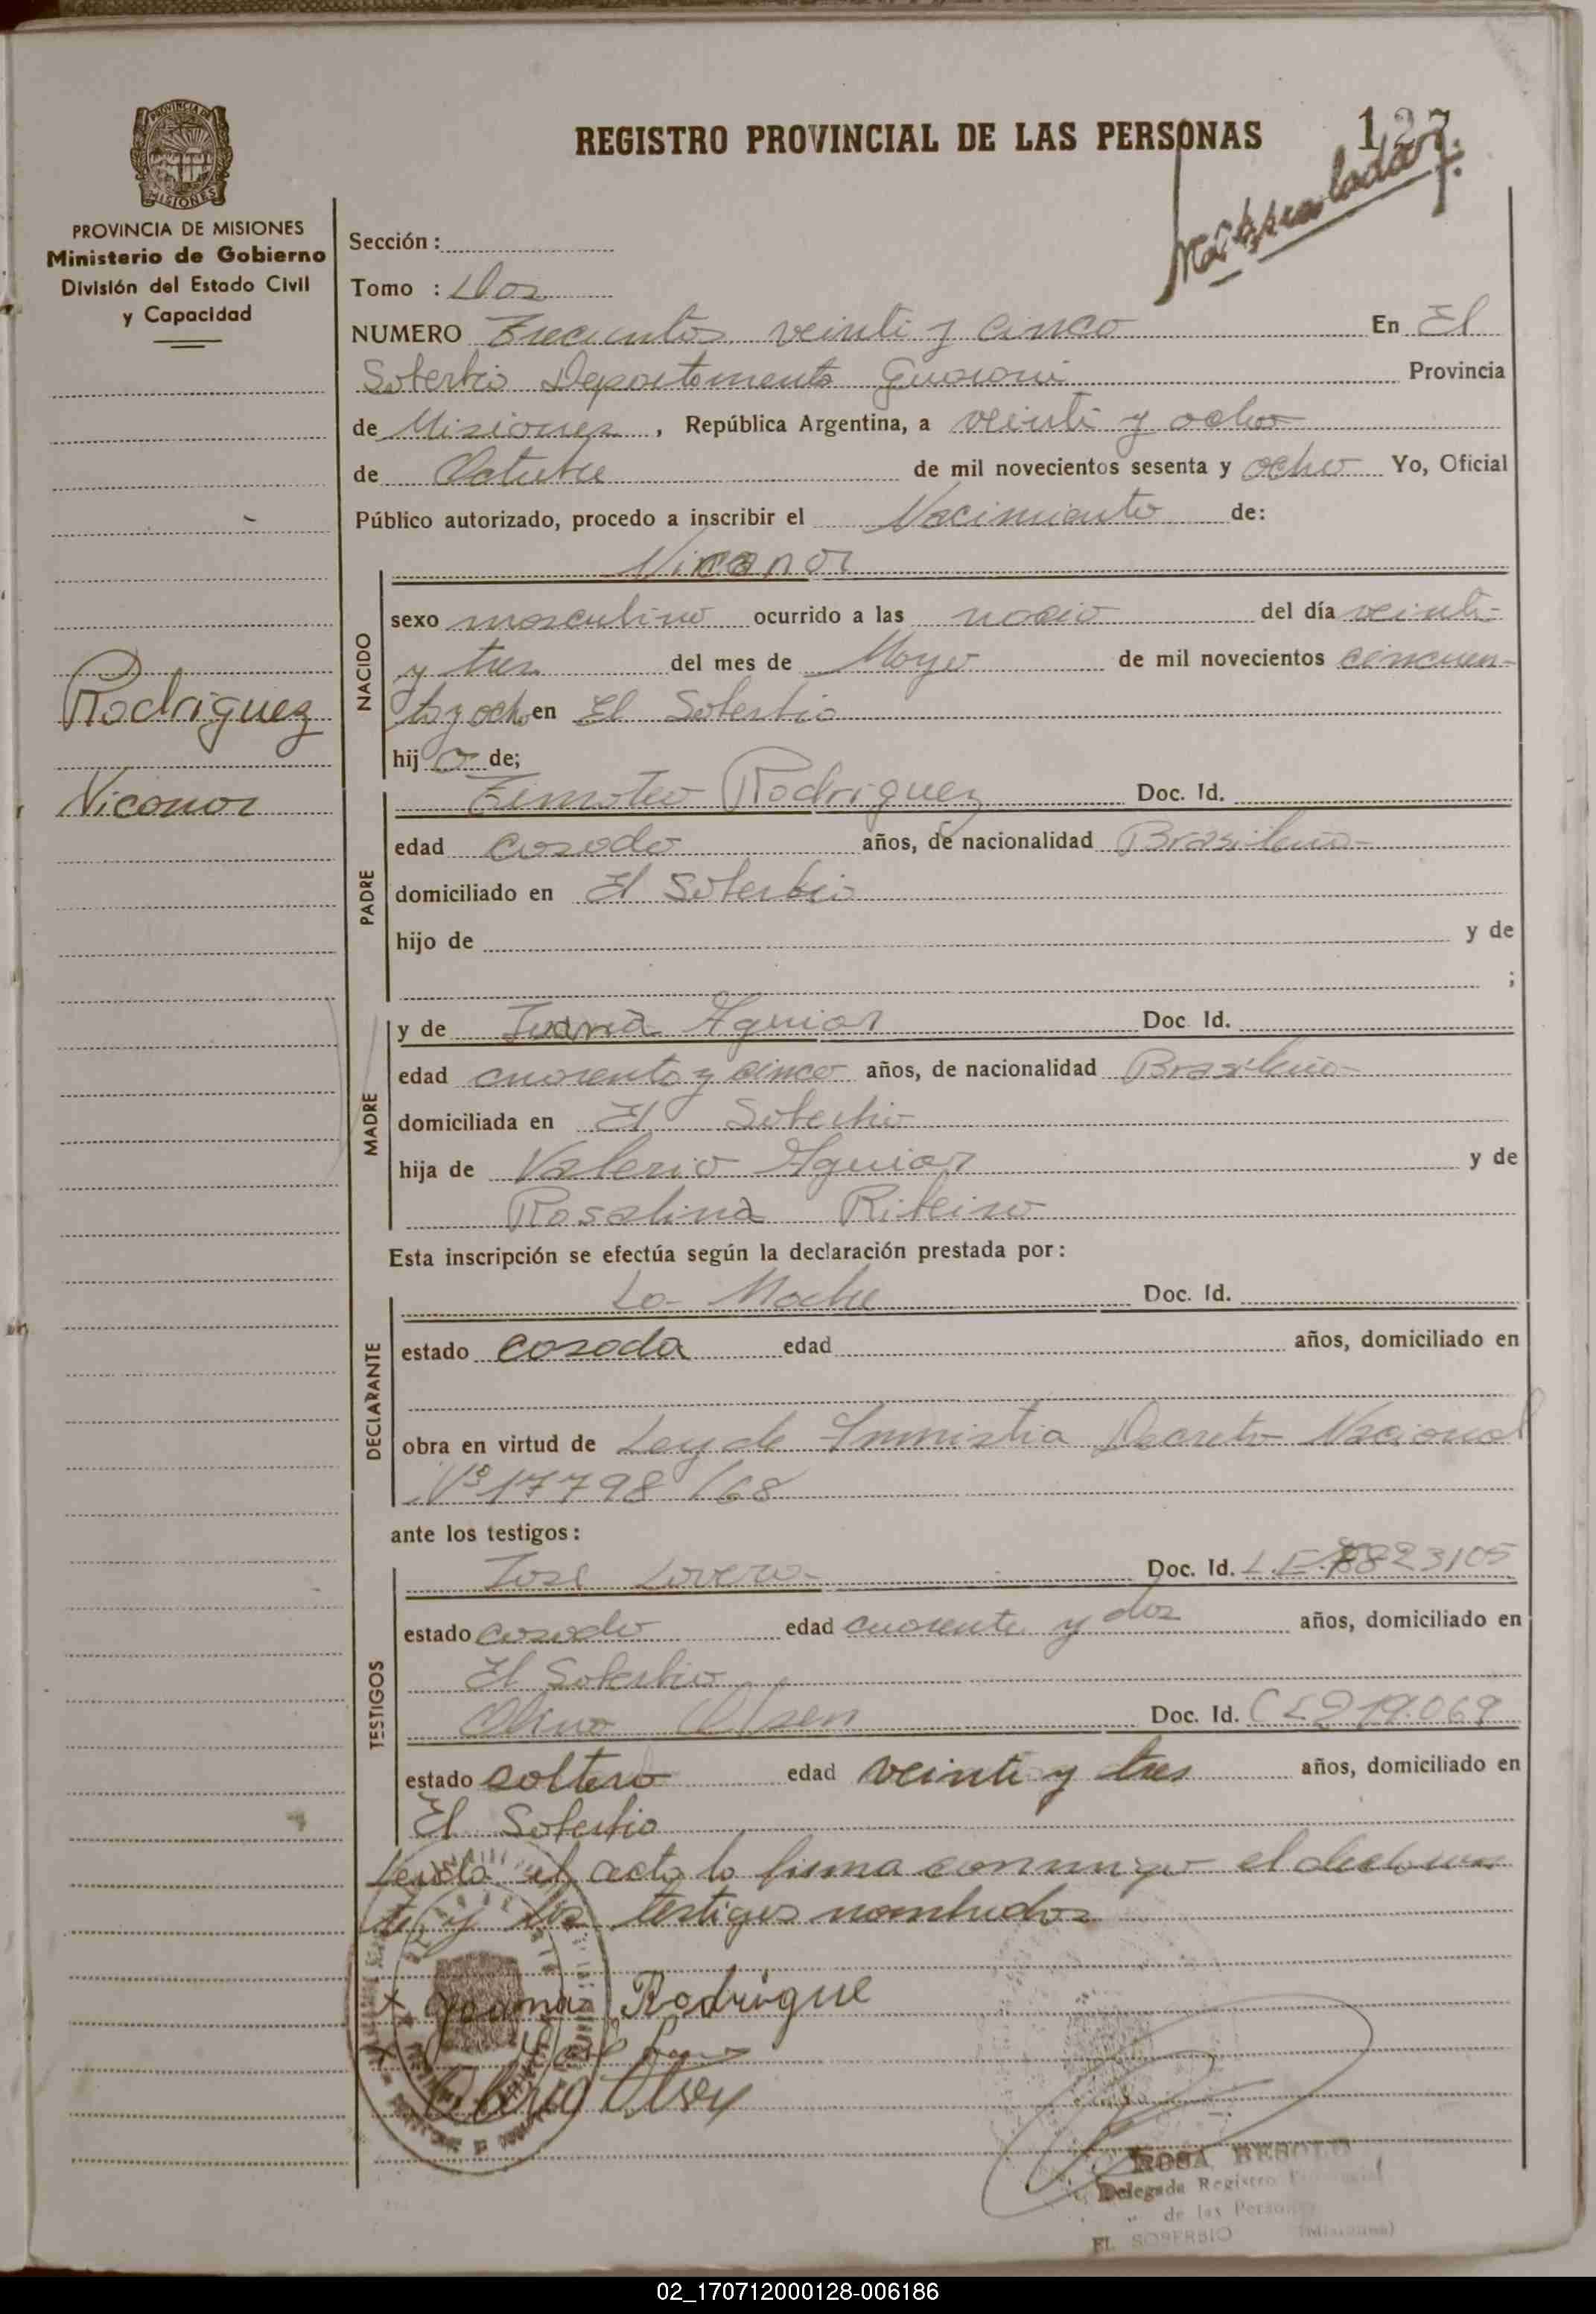 REGISTRO PROVINCIAL DE LAS PERSONAS
127
PROVINCIA DE MISIONES
Ministerio de Gobierno
División del Estado Civil
y Capacidad
Sección :
Tomo : Dos
NUMERO Trecientos veinti y cinco En El
Soberbio Departamento Guarani Provincia
de Misiones , República Argentina, a veinti y ocho
de Octubre de mil novecientos sesenta y ocho Yo, Oficial
Público autorizado, procedo a inscribir el Nacimiento de:
Nicanor
NACIDO
sexo masculino ocurrido a las del día veinti-
y tres del mes de Mayo de mil novecientos cincuen-
ta y ocho en El Soberbio
hij o de;
Rodriguez
Nicanor
PADRE
Timoteo Rodriguez Doc. Id.
edad casado años, de nacionalidad Brasileño
domiciliado en El Soberbio
hijo de y de
;
MADRE
y de Juana Aguiar Doc. Id.
edad cuarenta y cinco años, de nacionalidad Brasileño
domiciliada en El Soberbio
hija de Valerio Aguiar y de
Rosalina Ribeiro
Esta inscripción se efectúa según la declaración prestada por :
DECLARANTE
La Madre Doc. Id.
estado casada edad años, domiciliado en
obra en virtud de Ley de Amnistia Decreto Nacional
Nº 17798/68
ante los testigos :
TESTIGOS
Jose Lovera Doc. Id. L.E. 823105
estado casado edad cuarenta y dos años, domiciliado en
El Soberbio
Olivio Olsen Doc. Id. C 219.069
estado soltero edad veinti y tres años, domiciliado en
El Soberbio
el acta la firma conmigo el declaran
te y los testigos nombrados
Joana Rodrigue
Olsen
ROSA
Delegada Registro Provincial
de las Personas
EL SOBERBIO (Misiones)
02_170712000128-006186